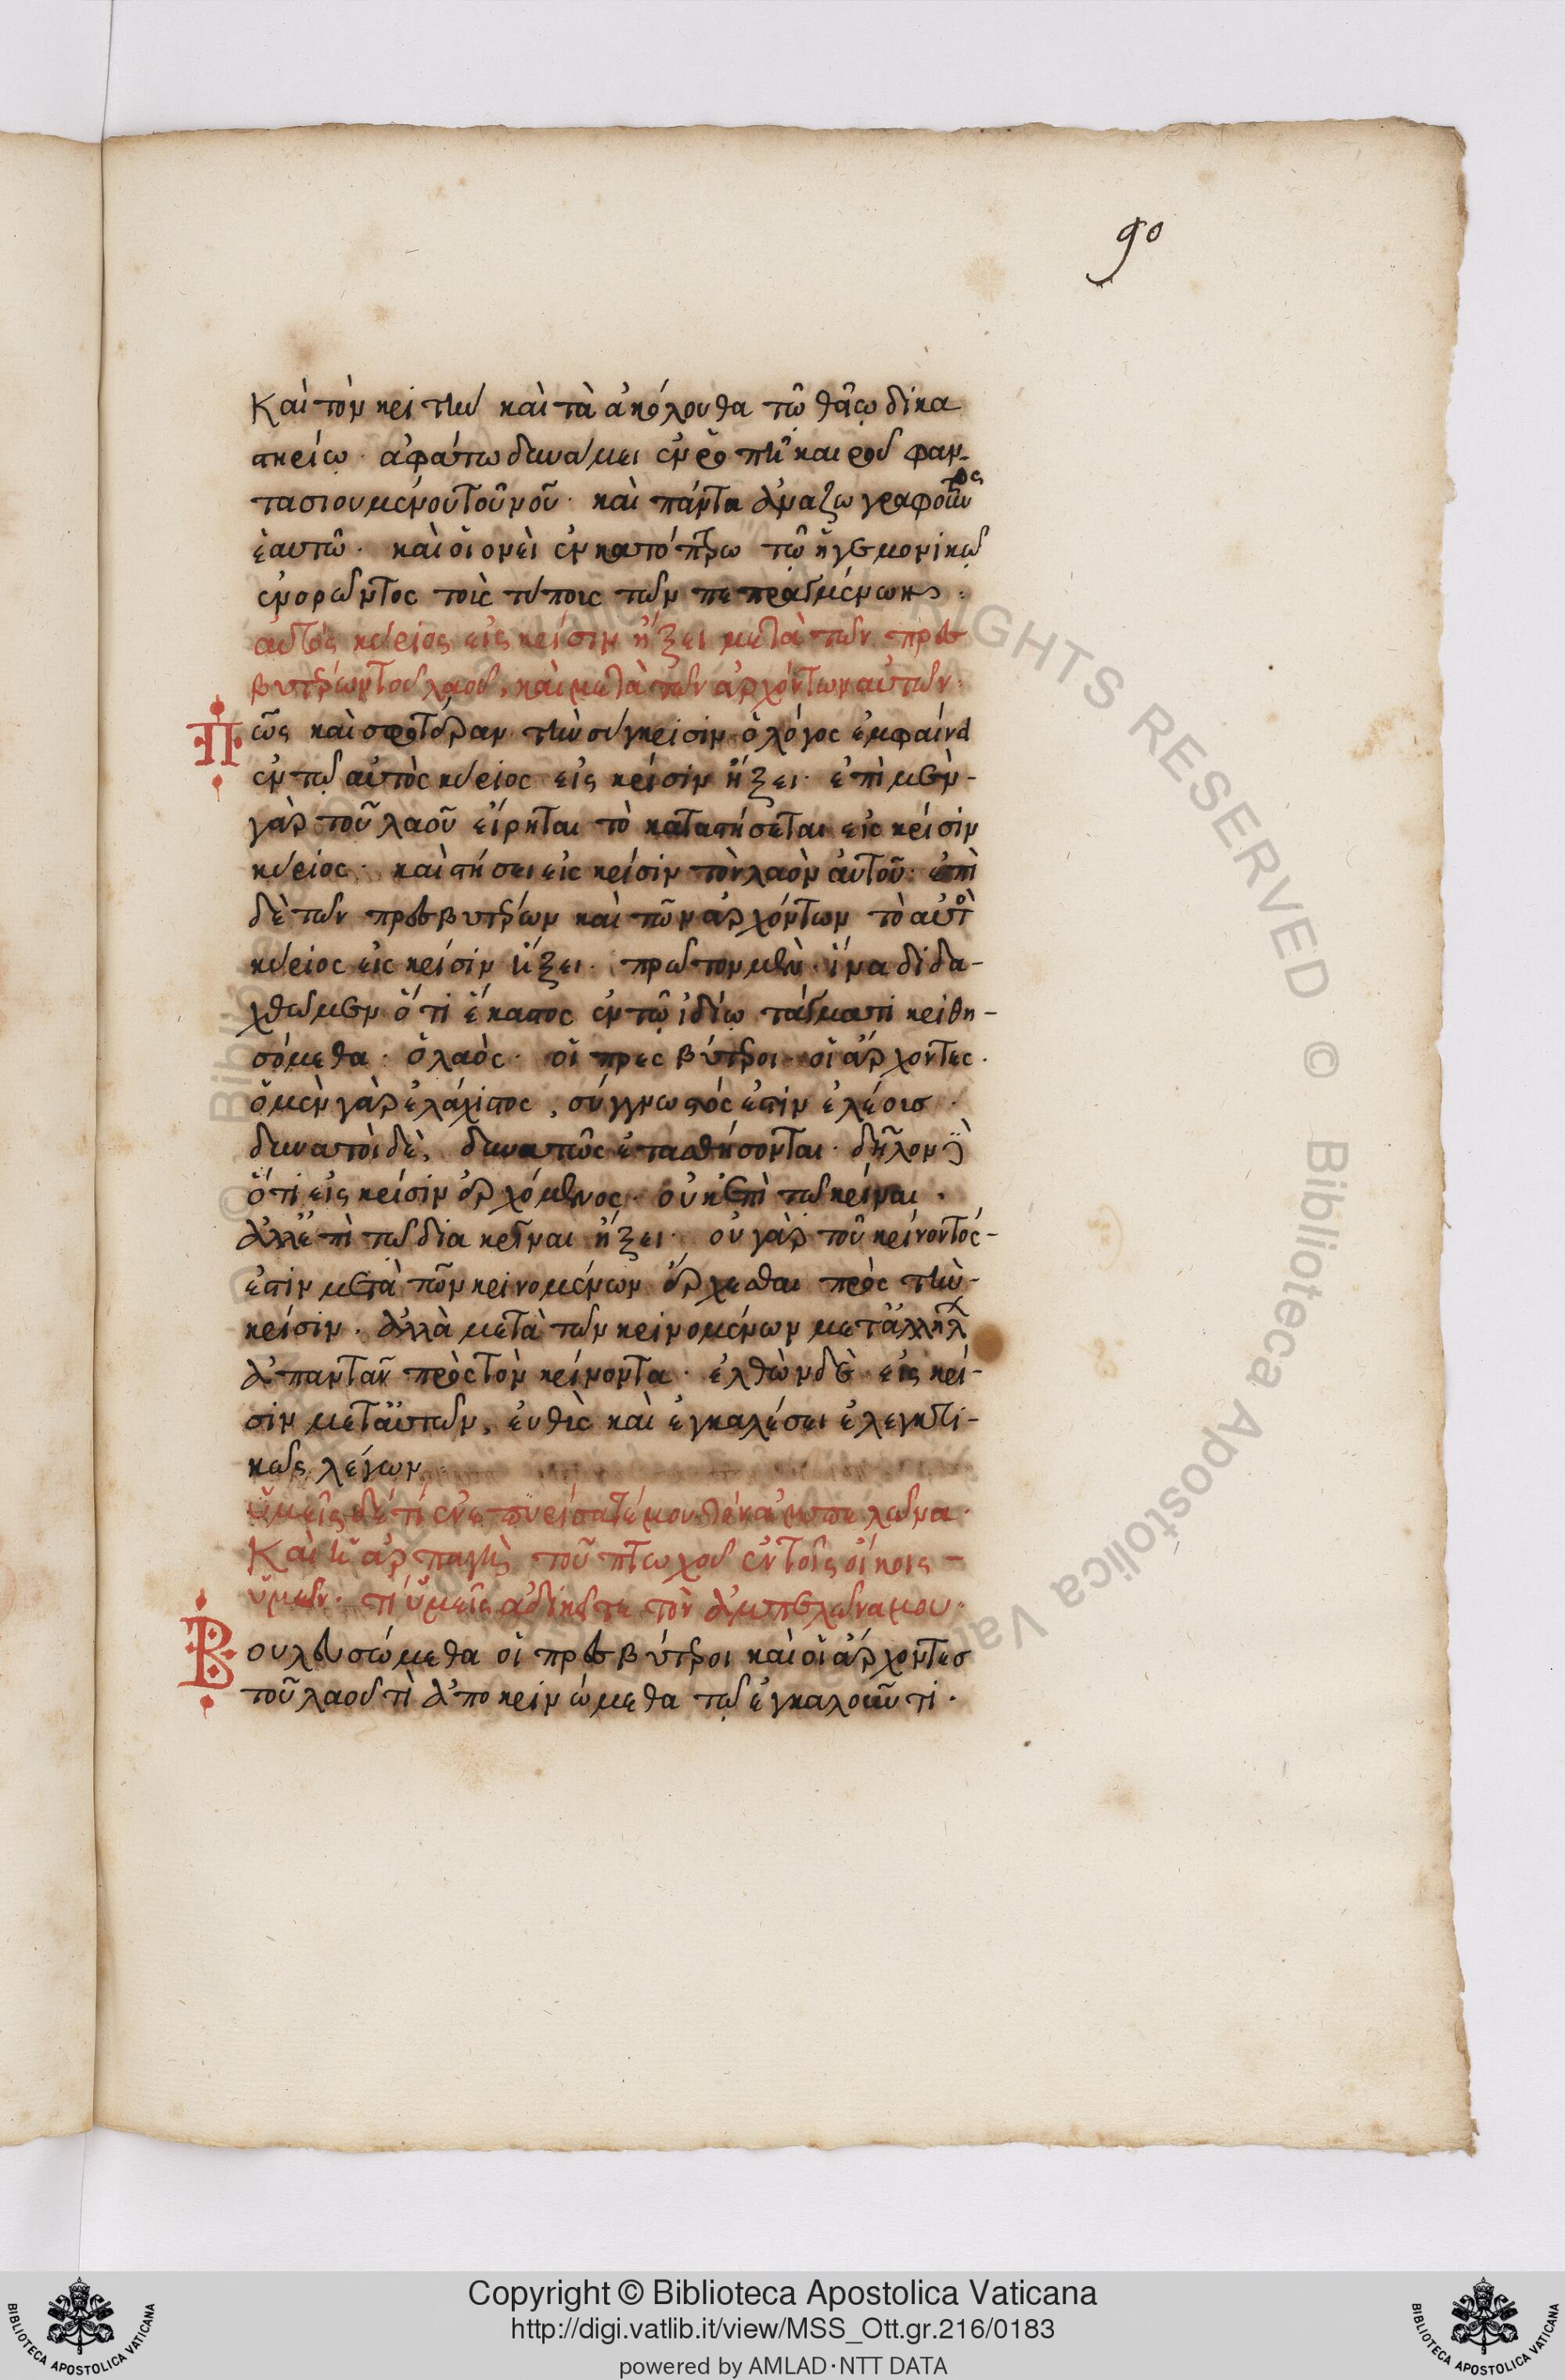 90
Καὶ τὸν κριτὴν καὶ τὰ ἀκόλουθα τῶ θείω δικα
στηρίω · ἀφάτω δυνάμει ἐν ῥοπῆ καιροῦ φαν-
τασιουμένου τοῦ νοῦ · καὶ πάντα ἀναζωγραφοῦντος
ἑαυτῶ · καὶ οἱονεὶ ἐν κατόπτρω τῶ ἡγεμονικῶ
ἐνορῶντος τοῖς τύποις τῶν πεπραγμένων :
αὐτὸς κύριος εἰς κρίσιν ἥξει μετὰ τῶν πρεσ
βυτέρων τοῦ λαοῦ, καὶ μετὰ τῶν ἀρχόντων αὐτῶν ·
Πῶς καὶ σφοδροτέραν τὴν σύγκρισιν ὁ λόγος ἐμφαίνει
ἐν τῶ αὐτὸς κύριος εἰς κρίσιν ἥξει · ἐπὶ μὲν-
γὰρ τοῦ λαοῦ εἴρηται τὸ καταστήσεται εἰς κρίσιν
κύριος · καὶ στήσει εἰς κρίσιν τὸν λαὸν αὐτοῦ · ἐπὶ
δὲ τῶν πρεσβυτέρων καὶ τῶν ἀρχόντων τὸ αὐτὸς
κύριος εἰς κρίσιν ἥξει · πρῶτον μὲν · ἵνα διδα-
χθῶμεν ὅτι ἕκαστος ἐν τῶ ἰδίω τάγματι κριθη-
σόμεθα · ὁ λαὸς · οἱ πρεσβύτεροι · οἱ ἄρχοντες ·
ὁ μὲν γὰρ ἐλάχιστος, σύγγνωστός ἐστιν ἐλέους ·
δυνατοὶ δὲ, δυνατῶς ἐτασθήσονται · δῆλον δὲ
ὅτι εἰς κρίσιν ἐρχόμενος · οὐκ ἐπὶ τῶ κρῖναι ·
ἀλλ' ἐπὶ τῶ διακρῖναι ἥξει · οὐ γὰρ τοῦ κρίνοντός-
ἐστιν μετὰ τῶν κρινομένων ἔρχεσθαι πρὸς τὴν-
κρίσιν · ἀλλὰ μετὰ τῶν κρινομένων μετ' ἀλλήλων
ἀπαντᾶν πρὸς τὸν κρίνοντα · ἐλθὼν δὲ εἰς κρί-
σιν μετ' αὐτῶν, εὐθὺς καὶ ἐγκαλέσει ἐλεγκτι-
κῶς λέγων
ὑμεῖς δὲ τί ἐνεπυρίσατέ μου τὸν ἀμπελῶνα ·
Καὶ ἡ ἁρπαγὴ τοῦ πτωχοῦ ἐν τοῖς οἴκοις -
ὑμῶν · τί ὑμεῖς ἀδικεῖτε τὸν ἀμπελῶνα μου ·
Βουλευσώμεθα οἱ πρεσβύτεροι καὶ οἱ ἄρχοντες
τοῦ λαοῦ τί ἀποκρινώμεθα τῶ ἐγκαλοῦντι ·
© Biblioteca Apostolica Vaticana
RIGHTS RESERVED
Copyright © Biblioteca Apostolica Vaticana
http://digi.vatlib.it/view/MSS_Ott.gr.216/0183
powered by AMLAD·NTT DATA
BIBLIOTECA APOSTOLICA VATICANA
BIBLIOTECA APOSTOLICA VATICANA